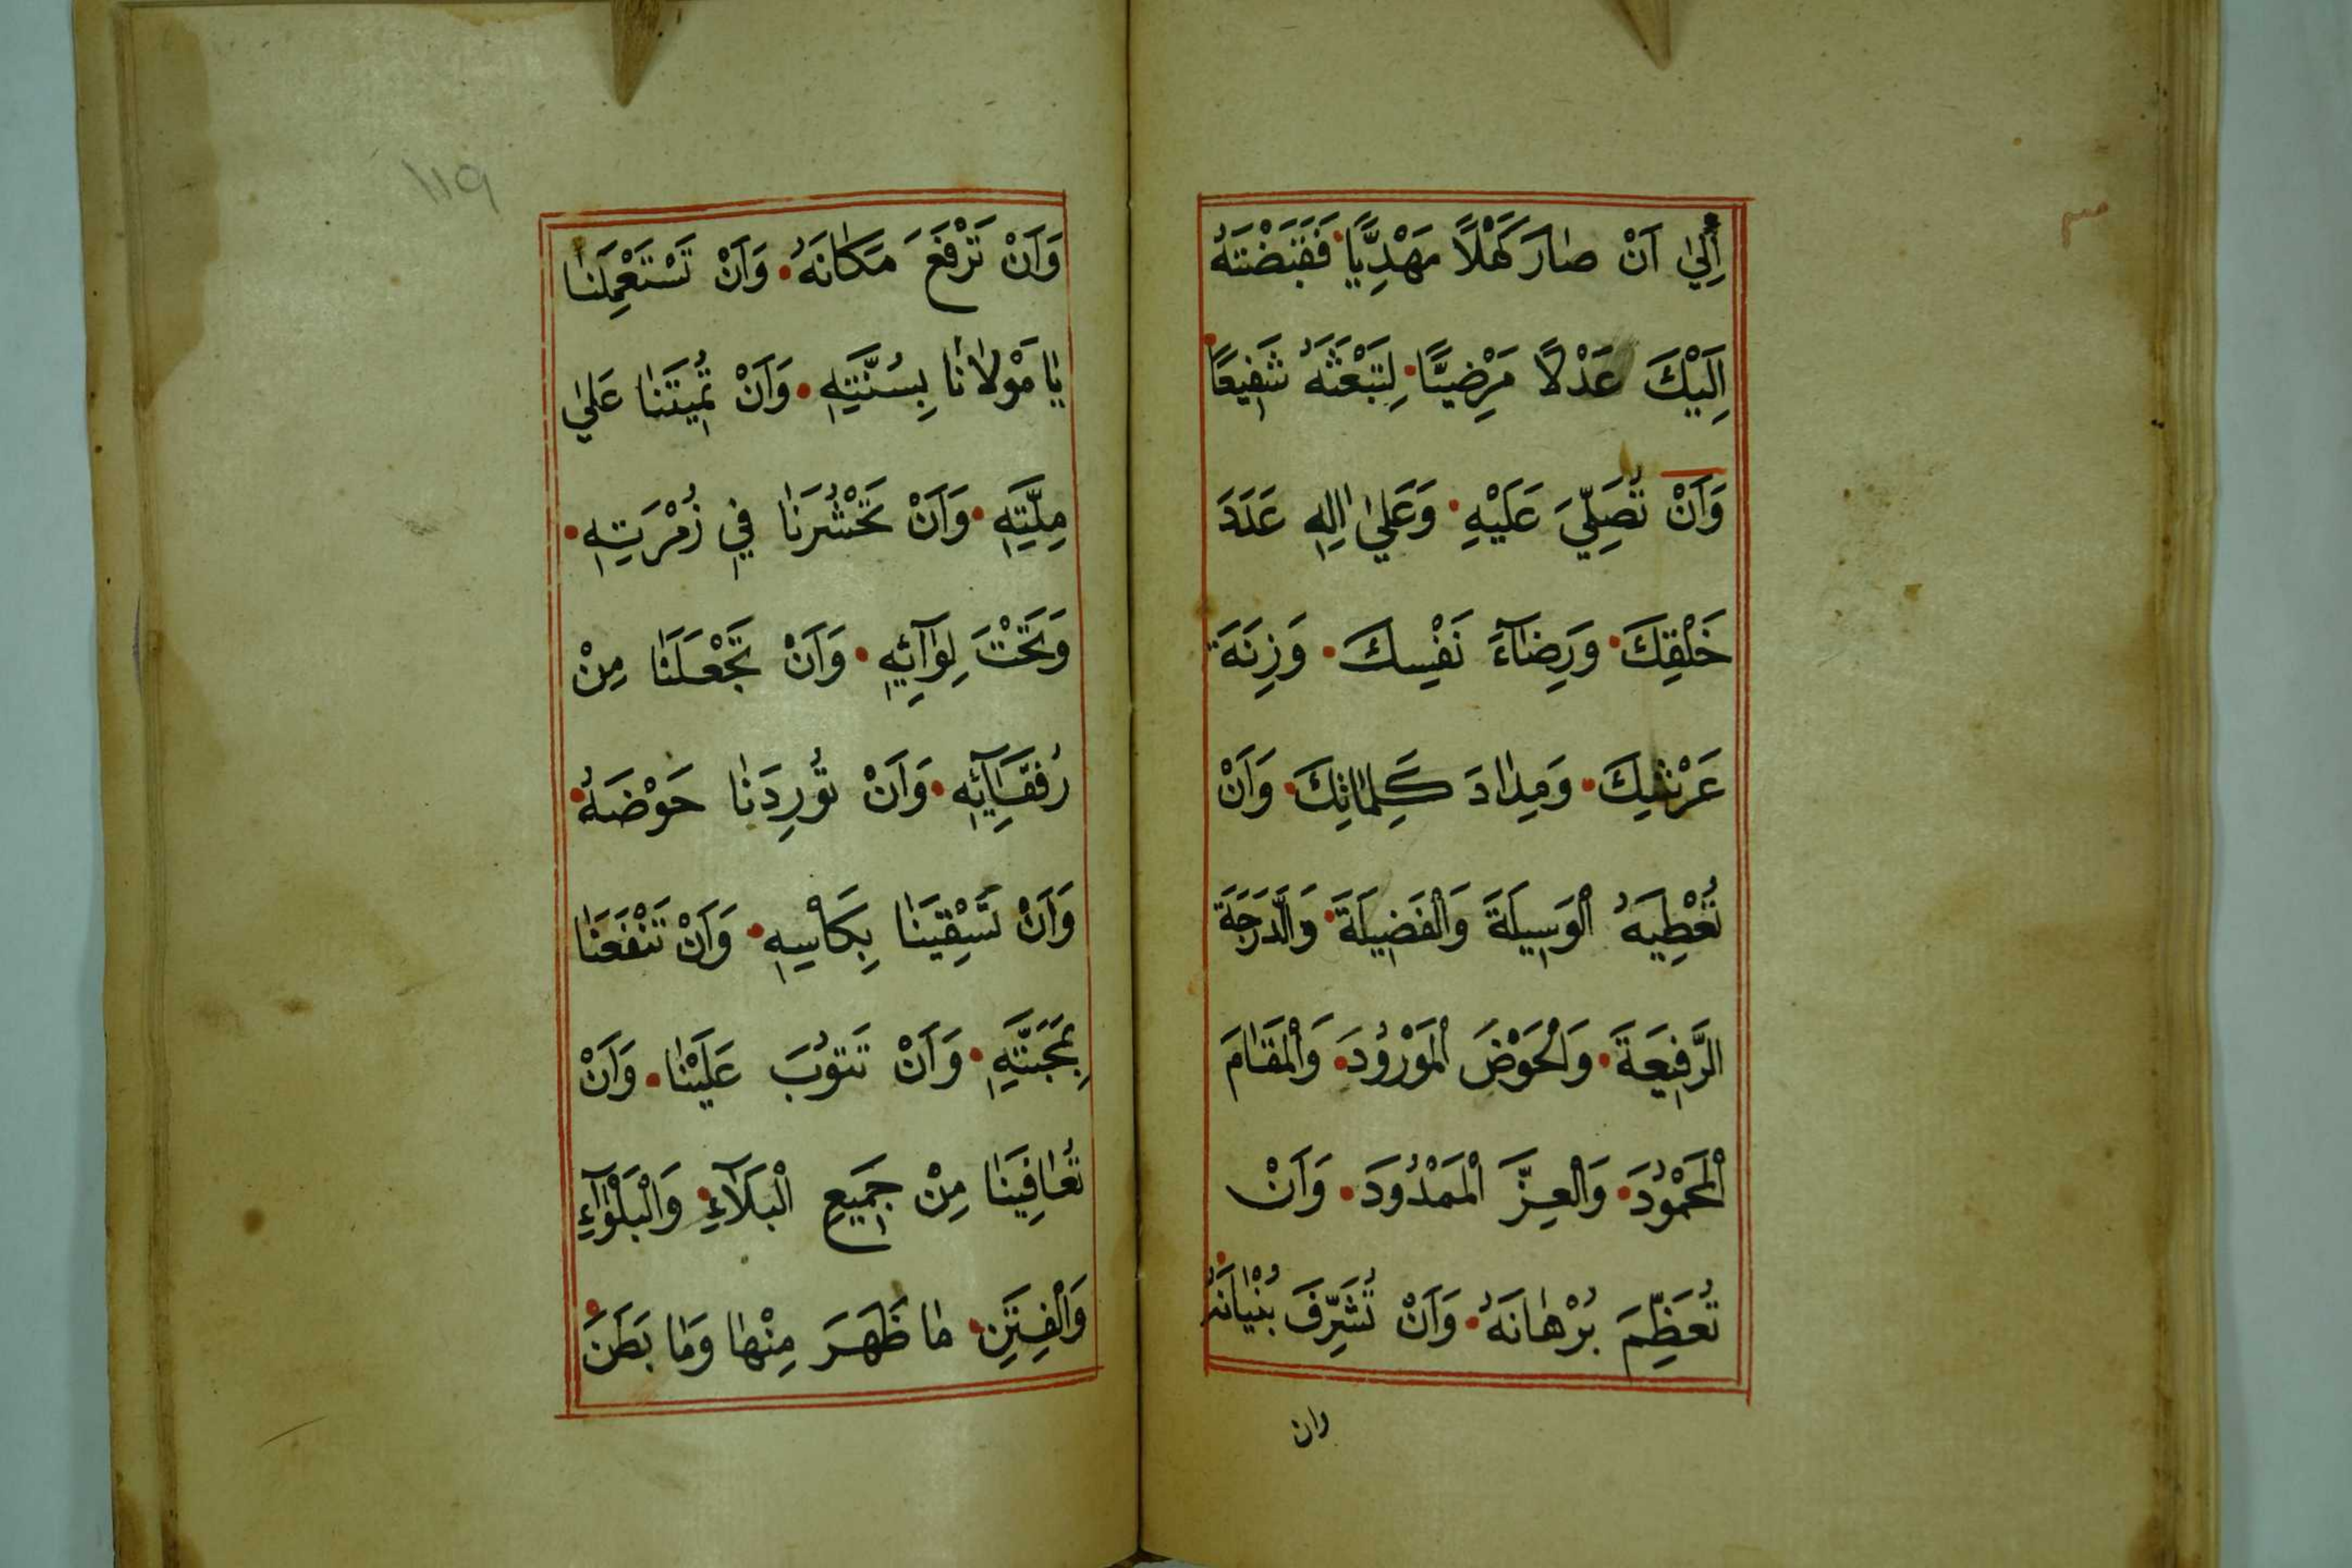 اِلٰى اَنْ صٰارَ كَهْلًا مَهْدِيًّا فَقَبَضْتَهُ
اِلَيْكَ عَدْلًا مَرْضِيًّا لِتَبْعَثَهُ شَفِيعًا
وَاَنْ تُصَلِّيَ عَلَيْهِ وَعَلٰى اٰلِهِ عَدَدَ
خَلْقِكَ وَرِضٰآءَ نَفْسِكَ وَزِنَةَ
عَرْشِكَ وَمِدٰادَ كَلِمٰاتِكَ وَاَنْ
تُعْطِيَهُ الْوَسِيلَةَ وَالْفَضِيلَةَ وَالدَّرَجَةَ
الرَّفِيعَةَ وَالْحَوْضَ الْمَوْرُودَ وَالْمَقٰامَ
الْمَحْمُودَ وَالْعِزَّ الْمَمْدُودَ وَاَنْ
تُعَظِّمَ بُرْهٰانَهُ وَاَنْ تُشَرِّفَ بُنْيٰانَهُ
وان
١١٩
وَاَنْ تَرْفَعَ مَكٰانَهُ وَاَنْ تَسْتَعْمِلَنٰا
يٰا مَوْلٰانٰا بِسُنَّتِهِ وَاَنْ تُمِيتَنٰا عَلٰى
مِلَّتِهِ وَاَنْ تَحْشُرَنٰا فِي زُمْرَتِهِ
وَتَحْتَ لِوٰآئِهِ وَاَنْ تَجْعَلَنٰا مِنْ
رُفَقٰآئِهِ وَاَنْ تُورِدَنٰا حَوْضَهُ
وَاَنْ تَسْقِيَنٰا بِكَاْسِهِ وَاَنْ تَنْفَعَنٰا
بِمَحَبَّتِهِ وَاَنْ تَتُوبَ عَلَيْنٰا وَاَنْ
تُعٰافِيَنٰا مِنْ جَمِيعِ الْبَلَآءِ وَالْبَلْوٰآءِ
وَالْفِتَنِ مٰا ظَهَرَ مِنْهٰا وَمٰا بَطَنَ